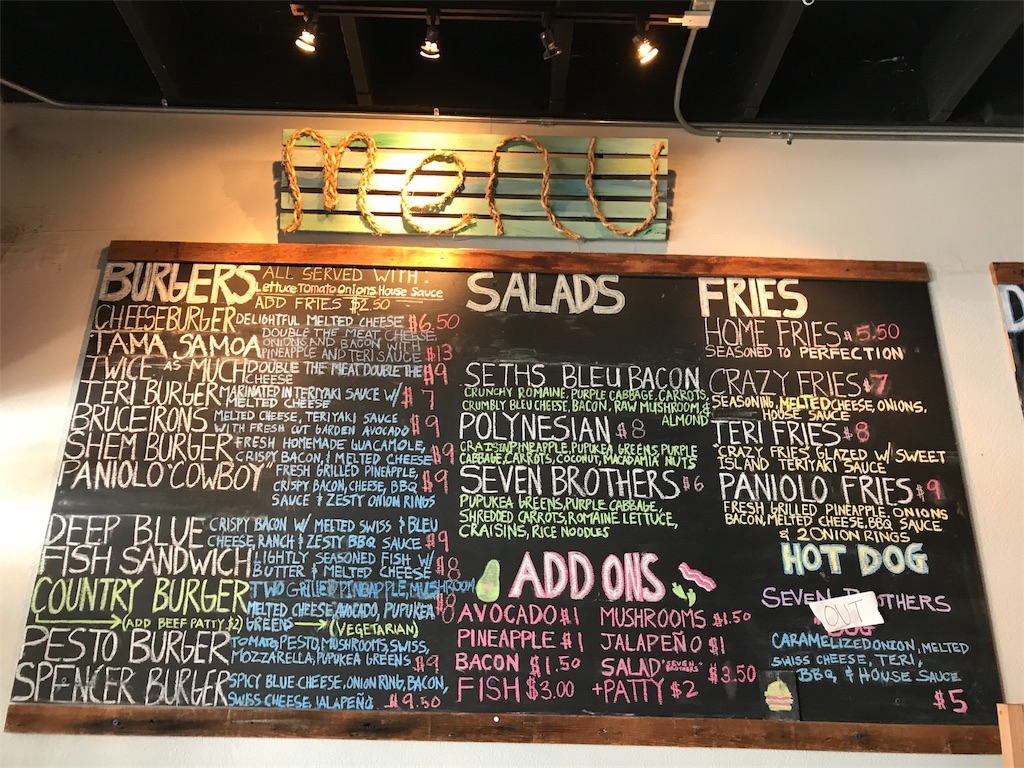 menu
BURGERS
ALL SERVED WITH:
Lettuce Tomato Onions House Sauce
ADD FRIES $2.50
CHEESEBURGER DELIGHTFUL MELTED CHEESE $6.50
"TAMA SAMOA DOUBLE THE MEAT CHEESE,
ONIONS AND BACON WITH
PINEAPPLE AND TERI SAUCE $13
TWICE AS MUCH DOUBLE THE MEAT DOUBLE THE
CHEESE $9
TERI BURGER MARINATED IN TERIYAKI SAUCE W/
MELTED CHEESE $7
BRUCE IRONS MELTED CHEESE, TERIYAKI SAUCE
WITH FRESH CUT GARDEN AVOCADO $9
SHEM BURGER FRESH HOMEMADE GUACAMOLE,
CRISPY BACON, & MELTED CHEESE $9
PANIOLO "COWBOY" FRESH GRILLED PINEAPPLE,
CRISPY BACON, CHEESE, BBQ
SAUCE & ZESTY ONION RINGS $9
DEEP BLUE CRISPY BACON W/ MELTED SWISS & BLEU
CHEESE, RANCH & ZESTY BBQ SAUCE $9
FISH SANDWICH LIGHTLY SEASONED FISH W/
BUTTER & MELTED CHEESE $8
COUNTRY BURGER TWO GRILLED PINEAPPLE, MUSHROOM
MELTED CHEESE, AVOCADO, PUPUKEA $8
(ADD BEEF PATTY $2) GREENS (VEGETARIAN)
PESTO BURGER TOMATO, PESTO, MUSHROOMS, SWISS,
MOZZARELLA, PUPUKEA GREENS $9
SPENCER BURGER SPICY BLUE CHEESE, ONION RING, BACON,
SWISS CHEESE, JALAPEÑO $9.50
SALADS
SETHS BLEU BACON
CRUNCHY ROMAINE, PURPLE CABBAGE, CARROTS,
CRUMBLY BLEU CHEESE, BACON, RAW MUSHROOM, &
ALMOND
POLYNESIAN $8
CRAISIN PINEAPPLE, PUPUKEA GREENS, PURPLE
CABBAGE, CARROTS, COCONUT, MACADAMIA NUTS
SEVEN BROTHERS $6
PUPUKEA GREENS, PURPLE CABBAGE,
SHREDDED CARROTS, ROMAINE LETTUCE,
CRAISINS, RICE NOODLES
ADD ONS
AVOCADO $1
PINEAPPLE $1
BACON $1.50
FISH $3.00
MUSHROOMS $1.50
JALAPEÑO $1
SALAD "SEVEN BROTHERS" $3.50
+PATTY $2
FRIES
HOME FRIES $5.50
SEASONED TO PERFECTION
CRAZY FRIES $7
SEASONING, MELTED CHEESE, ONIONS,
HOUSE SAUCE
TERI FRIES $8
"CRAZY FRIES GLAZED W/ SWEET
ISLAND TERIYAKI SAUCE
PANIOLO FRIES $9
FRESH GRILLED PINEAPPLE, ONIONS
BACON, MELTED CHEESE, BBQ SAUCE
& 2 ONION RINGS
HOT DOG
SEVEN BROTHERS
OUT
DOG
CARAMELIZED ONION, MELTED
SWISS CHEESE, TERI,
BBQ & HOUSE SAUCE
$5
D